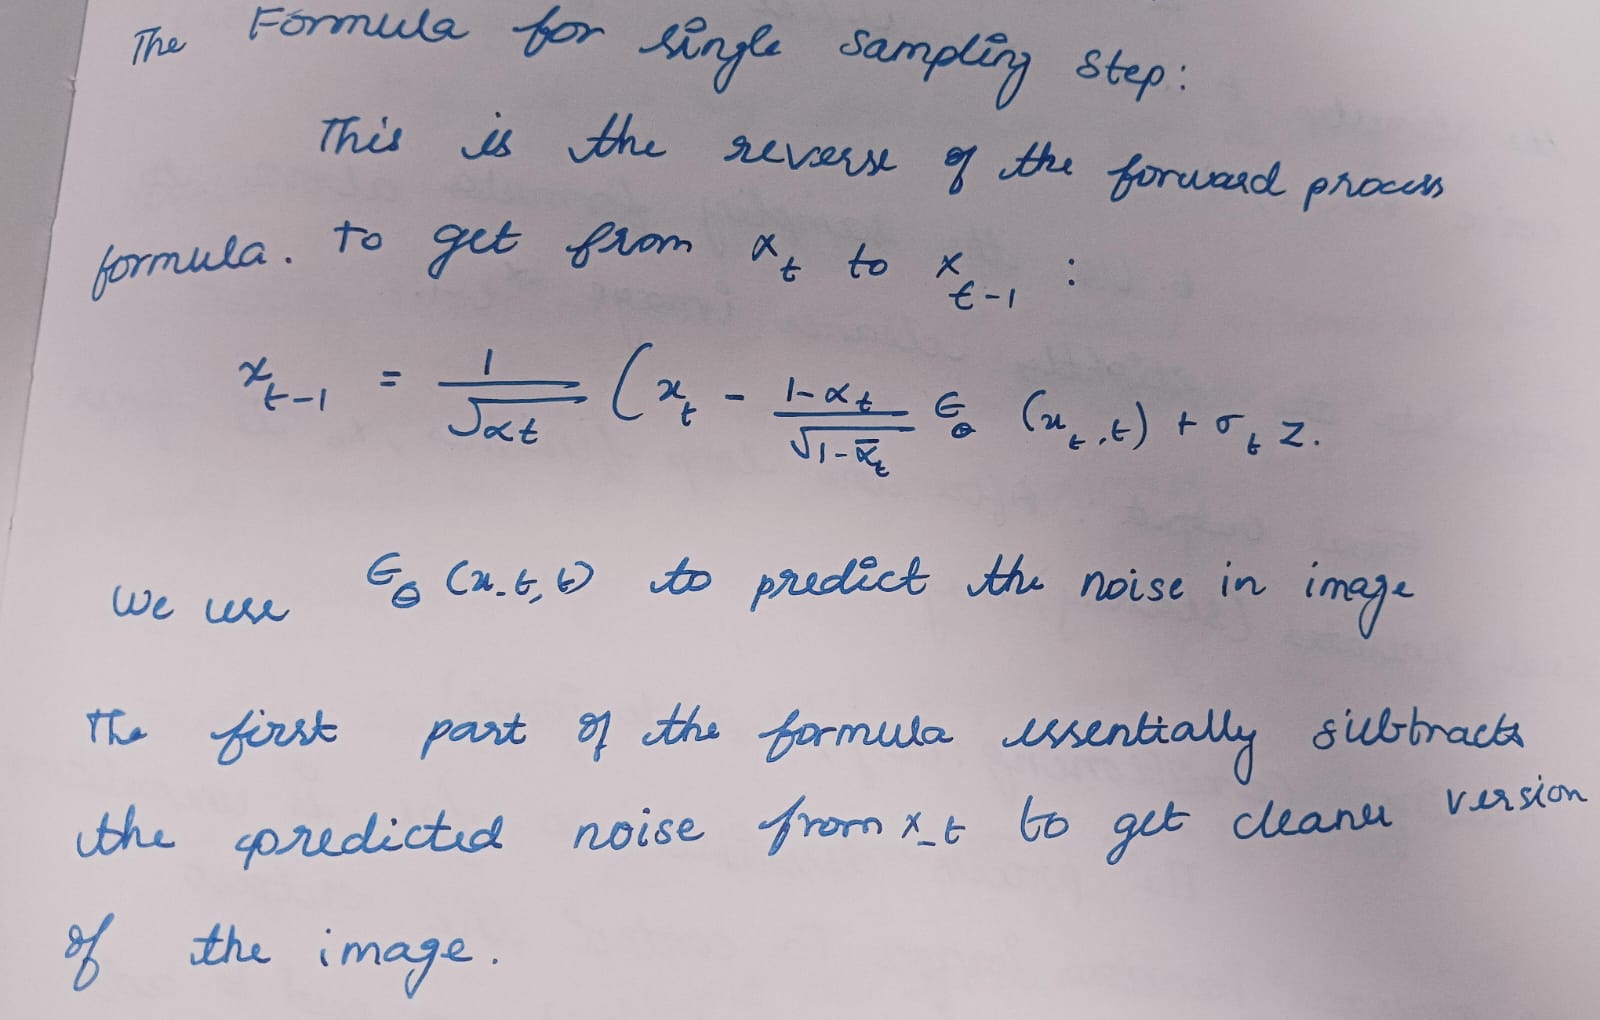 The Formula for single sampling step:
This is the reverse of the forward process
formula. To get from x_t to x_{t-1} :
x_{t-1} = \frac{1}{\sqrt{αt}} ( x_t - \frac{1-α_t}{\sqrt{1-\bar{α}_t}} ϵ_θ (x_t,t) + σ_t z.
We use ϵ_θ (x_t, t) to predict the noise in image
The first part of the formula essentially subtracts
the predicted noise from x_t to get cleaner version
of the image.